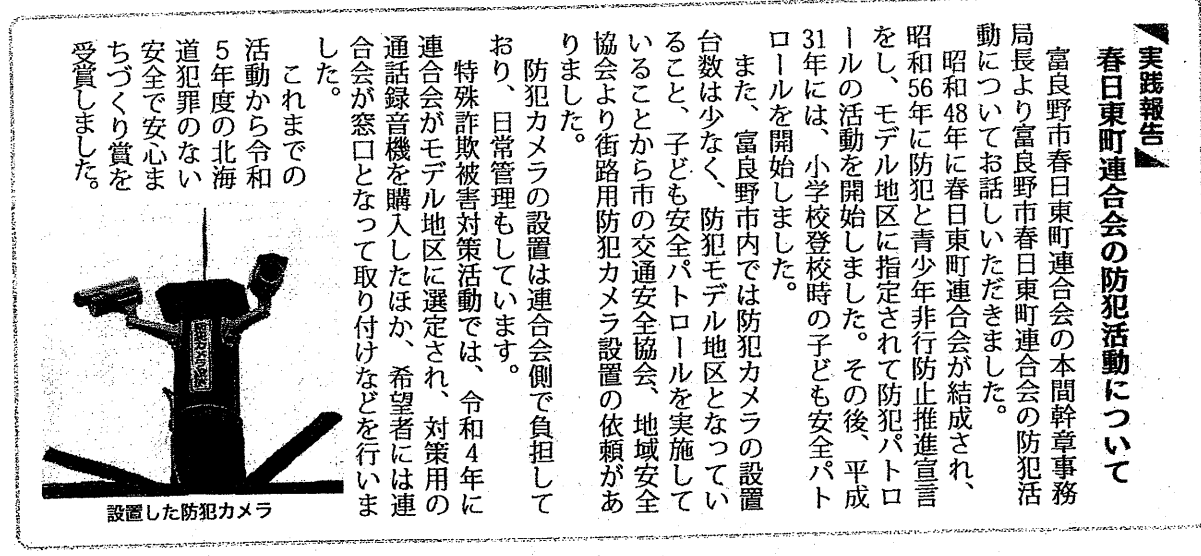 実践報告
春日東町連合会の防犯活動について
富良野市春日東町連合会の本間幹章事務
局長より富良野市春日東町連合会の防犯活
動についてお話しいただきました。
昭和48年に春日東町連合会が結成され、
昭和56年に防犯と青少年非行防止推進宣言
をし、モデル地区に指定されて防犯パトロ
ールの活動を開始しました。その後、平成
31年には、小学校登校時の子ども安全パト
ロールを開始しました。
また、富良野市内では防犯カメラの設置
台数は少なく、防犯モデル地区となってい
ること、子ども安全パトロールを実施して
いることから市の交通安全協会、地域安全
協会より街路用防犯カメラ設置の依頼があ
りました。
防犯カメラの設置は連合会側で負担して
おり、日常管理もしています。
特殊詐欺被害対策活動では、令和4年に
連合会がモデル地区に選定され、対策用の
通話録音機を購入したほか、希望者には連
合会が窓口となって取り付けなどを行いま
した。
これまでの
活動から令和
5年度の北海
道犯罪のない
安全で安心ま
ちづくり賞を
受賞しました。
設置した防犯カメラ